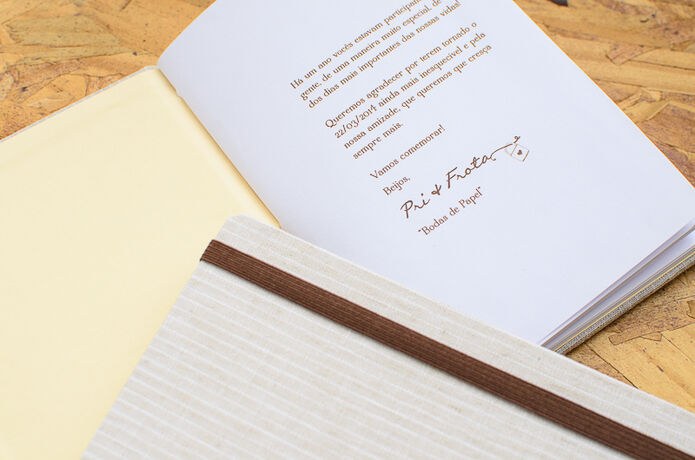 Há um ano vocês estavam participan
gente, de uma maneira muito especial, de
dos dias mais importantes das nossas vidas!
Queremos agradecer por terem tornado o
22/03/2014 ainda mais inesquecível e pela
nossa amizade, que queremos que cresça
sempre mais.
Vamos comemorar!
Beijos,
Pri & Frota
"Bodas de Papel"